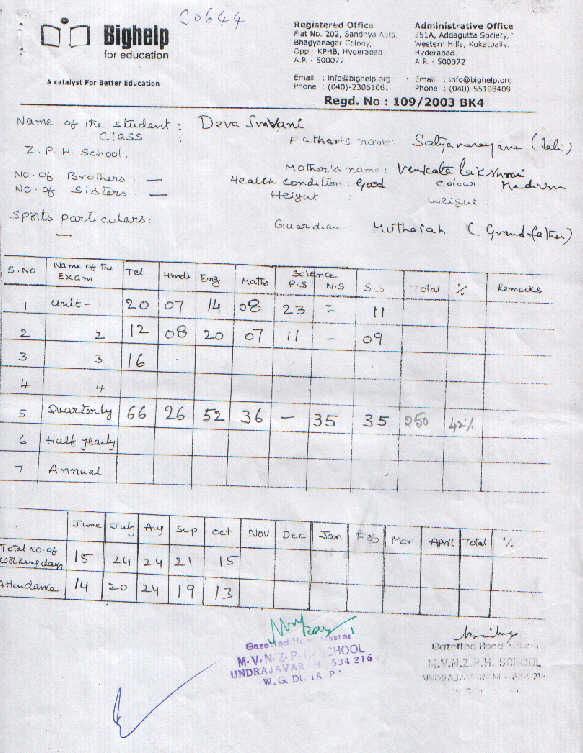 C0644
Bighelp
for education
A catalyst For Better Education
Registered Office
Flat No. 202, Sandhya Apts.
Bhagyanagar Colony,
Opp. KPHB, Hyderabad
A.P. - 500072
Email : info@bighelp.org
Phone : (040)-2306106
Administrative Office
251A, Addagutta Society,
Western Hills, Kukatpally,
Hyderabad.
A.P. - 500072
Email : info@bighelp.org
Phone : (040)-55103409
Regd. No : 109/2003 BK4
Name of the student : Deva Sravani
Class
Father's name: Satyanarayana (late)
Z.P.H. School.
Mother's name: Venkata Lakshmi
No. of Brothers : —
Health Condition : Good Colour Medium
No. of Sisters : —
Height : Weight
Sports particulars: —
Guardian Muthaiah (Grandfather)
S.No Name of the Exam Tel Hindi Eng Maths Science P.S N.S S.S Total % Remarks
1 Unit- 20 07 14 08 23 - 11
2 2 12 08 20 07 11 - 09
3 3 16
4 4
5 Quarterly 66 26 52 36 — 35 35 250 42%
6 Half yearly
7 Annual
June July Aug Sep Oct Nov Dec Jan Feb Mar April Total %
Total no. of working days 15 24 24 21 15
Attendance 14 20 24 19 13
Gazetted Head
M.V.N.Z.P.H. SCHOOL
UNDRAJAVARAM 534 216
W.G. Dt. (A.P.)
Gazetted Head
M.V.N.Z.P.H. SCHOOL